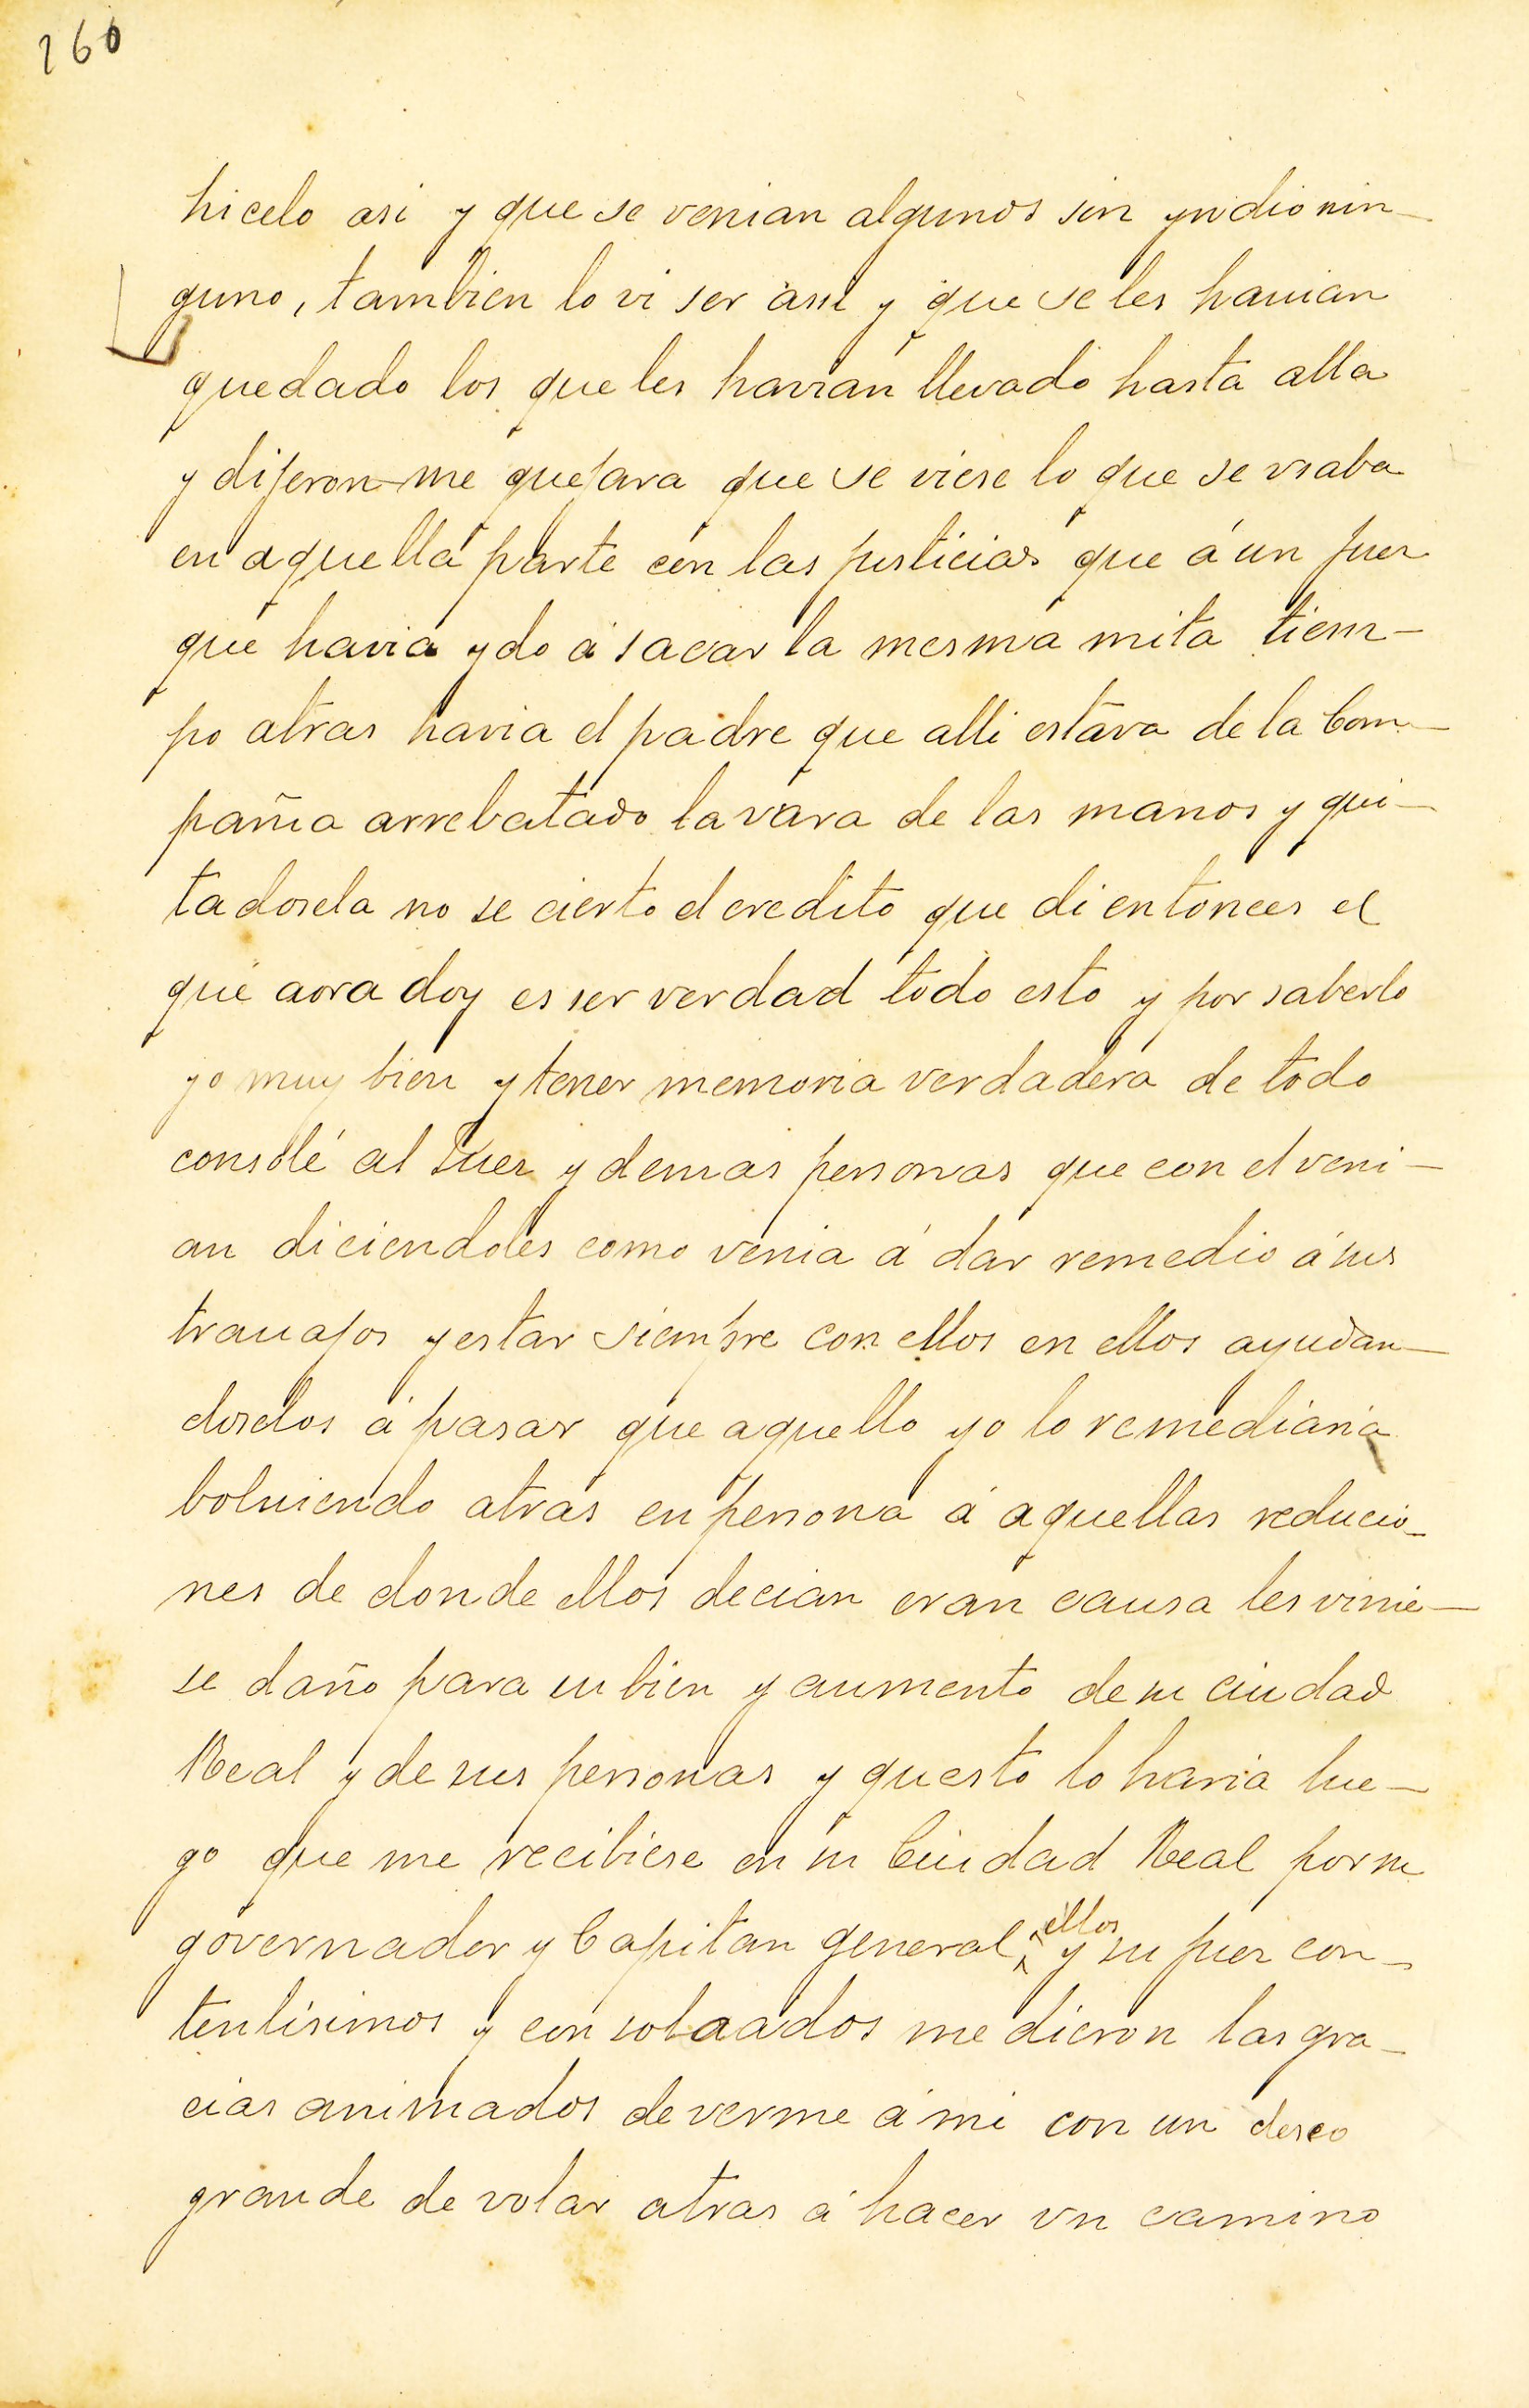 260
hicelo asi y que se venian algunos sin yndio nin-
guno, tambien lo vi ser assi y que se les hauian
quedado los que les havian llevado hasta alla
y dijeron-me que para que se viese lo que se vsaba
en aquella parte con las justicias que á un juez
que havia ydo á sacar la mesma mita tiem-
po atras havia el padre que alli estava de la Com-
pañia arrebatado la vara de las manos y qui-
tadosela no se cierto el credito que di entonces el
que aora doy es ser verdad todo esto y por saberlo
yo muy bien y tener memoria verdadera de todo
consolé al Juez y demas personas que con el veni-
an diciendoles como venia á dar remedio á sus
trauajos y estar siempre con ellos en ellos ayudan-
doselos á pasar que aquello yo lo remediaria
bolviendo atras en persona á aquellas reducio-
nes de donde ellos decian eran causa les vinie-
se daño para su bien y aumento de su ciudad
Real y de sus personas y questo lo haria lue-
go que me recibiese en su Ciudad Real por su
governador y Capitan general, ellos y su juez con-
tentisimos y consolaados me dieron las gra-
cias animados de verme á mi con un deseo
grande de volar atras á hacer vn camino